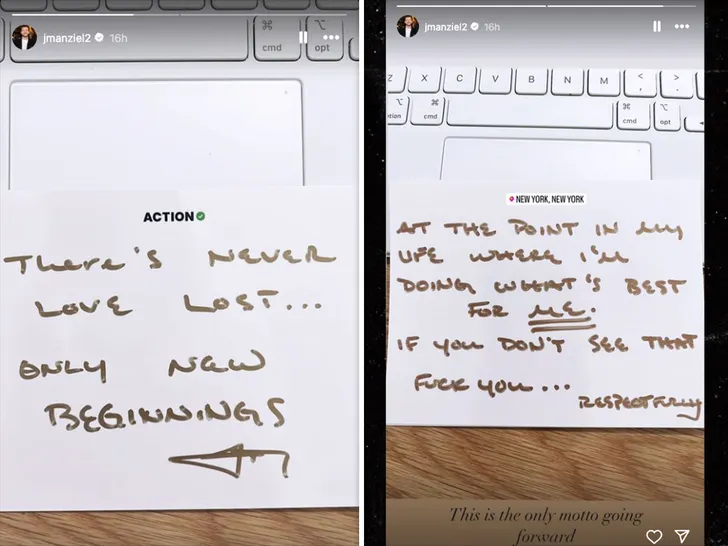 jmanziel2 16h
cmd
opt
ACTION
THERE'S NEVER
LOVE LOST...
ONLY NEW
BEGINNINGS
jmanziel2 16h
Z X C V B N M < , > .
⌥ ⌘
cmd
⌘ ⌥
cmd opt
NEW YORK, NEW YORK
AT THE POINT IN MY
LIFE WHERE I'M
DOING WHAT'S BEST
FOR ME.
IF YOU DON'T SEE THAT
FUCK YOU...
RESPECTFULLY
This is the only motto going
forward